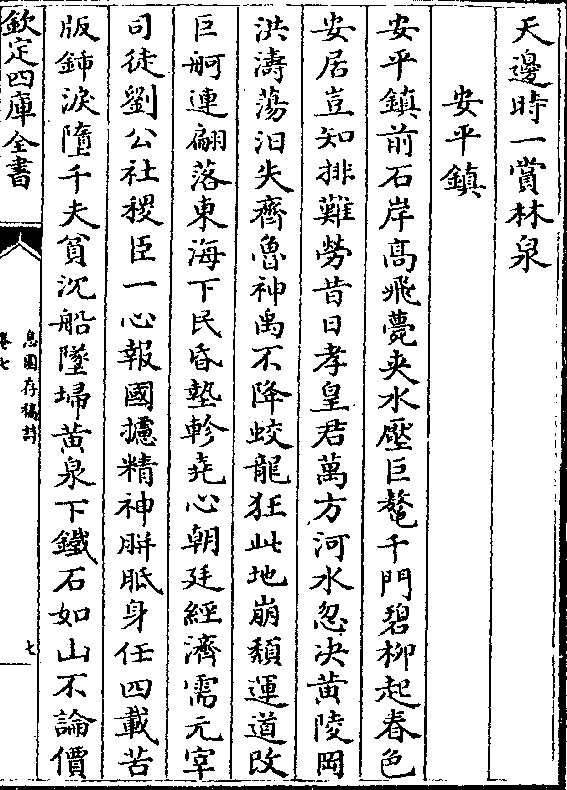 天邊時一賞林泉
安平鎮
安平鎮前石岸高飛甍夾水壓巨鼇千門碧柳起春色
安居豈知排難勞昔日孝皇君萬方河水忽決黃陵岡
洪濤蕩汨失齊魯神禹不降蛟龍狂此地崩頽運道改
巨舸連翩落東海下民昏墊軫堯心朝廷經濟需元宰
司徒劉公社稷臣一心報國攄精神胼胝身任四載苦
版鍤淚墮千夫貧沉船墜埽黃泉下鐵石如山不論價
欽定四庫全書
息園存稿詩
卷七
七